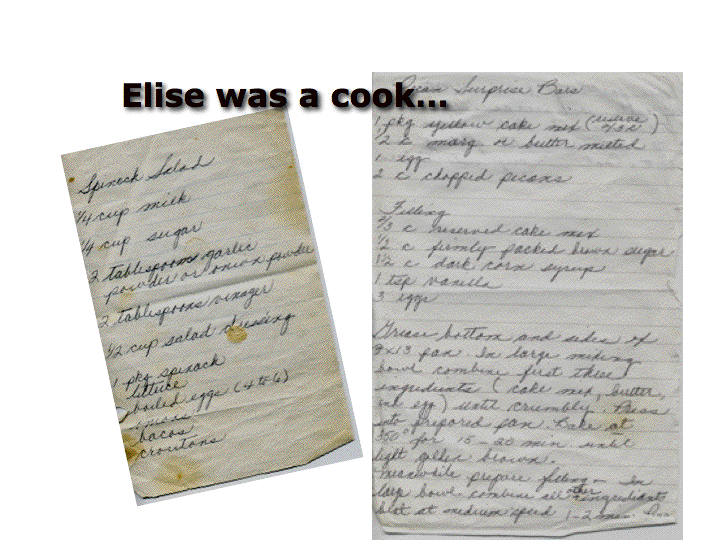 Elise was a cook...
Spinach Salad
1/4 cup milk
1/4 cup sugar
2 tablespoons garlic
powder or onion powder
2 tablespoons vinager
1/2 cup salad dressing
1 pkg spinach
lettuce
boiled eggs (4 to 6)
bacos
croutons
Pecan Surprise Bars
1 pkg yellow cake mix (reserve 2/3 c)
1/2 c marg or butter melted
1 egg
2 c chopped pecans
Filling
2/3 c reserved cake mix
1/2 c firmly packed brown sugar
1 1/2 c dark corn syrup
1 tsp vanilla
3 eggs
Grease bottom and sides of
9x13 pan. In large mixing
bowl combine first three
ingredients (cake mix, butter,
one egg) until crumbly. Press
into prepared pan. Bake at
350° for 15-20 min until
light golden brown.
Meanwhile prepare filling - In
large bowl combine all other ingredients
beat at medium speed 1-2 min.